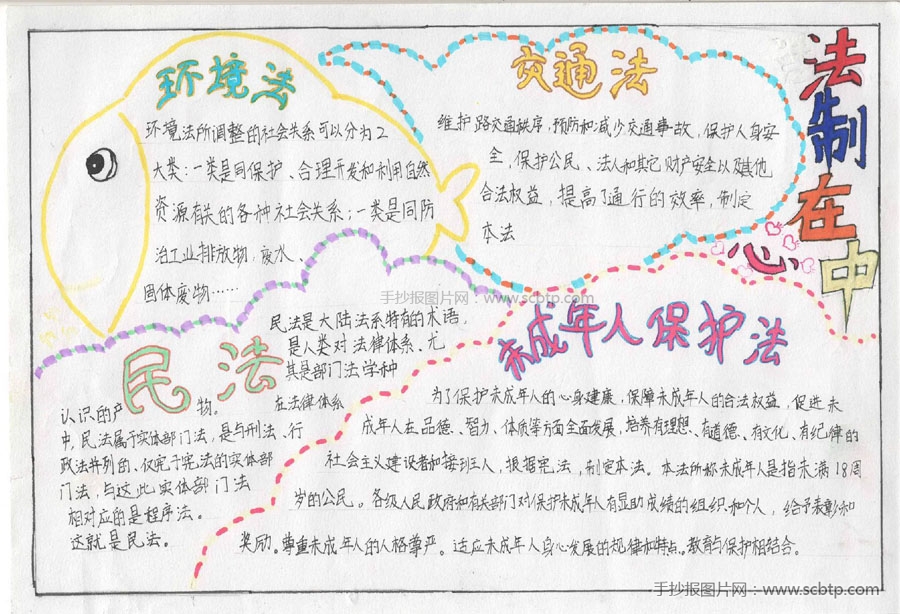 法制在心中
环境法
环境法所调整的社会关系可以分为2
大类:一类是同保护、合理开发和利用自然
资源有关的各种社会关系；一类是同防
治工业排放物，废水、
固体废物……
交通法
维护路交通秩序，预防和减少交通事故，保护人身安
全，保护公民、法人和其它财产安全以及其他
合法权益，提高了通行的效率，制定
本法
手抄报图片网：www.scbtp.com
民法
民法是大陆法系特有的术语，
是人类对法律体系、尤
其是部门法学种
认识的产物。在法律体系
中，民法属于实体部门法，是与刑法、行
政法并列的、仅完于宪法的实体部
门法，与这此实体部门法
相对应的是程序法。
这就是民法。
未成年人保护法
为了保护未成年人的心身建康，保障未成年人的合法权益，促进未
成年人在品德、智力、体质等方面全面发展，培养有理想、有道德、有文化、有纪律的
社会主义建设者和接班人，根据宪法，制定本法。本法所称未成年人是指未满18周
岁的公民。各级人民政府和有关部门对保护未成年人有显助成绩的组织和个人，给予表彰和
奖励。尊重未成年人的人格尊严。适应未成年人身心发展的规律和特点。教育与保护相结合。
手抄报图片网：www.scbtp.com